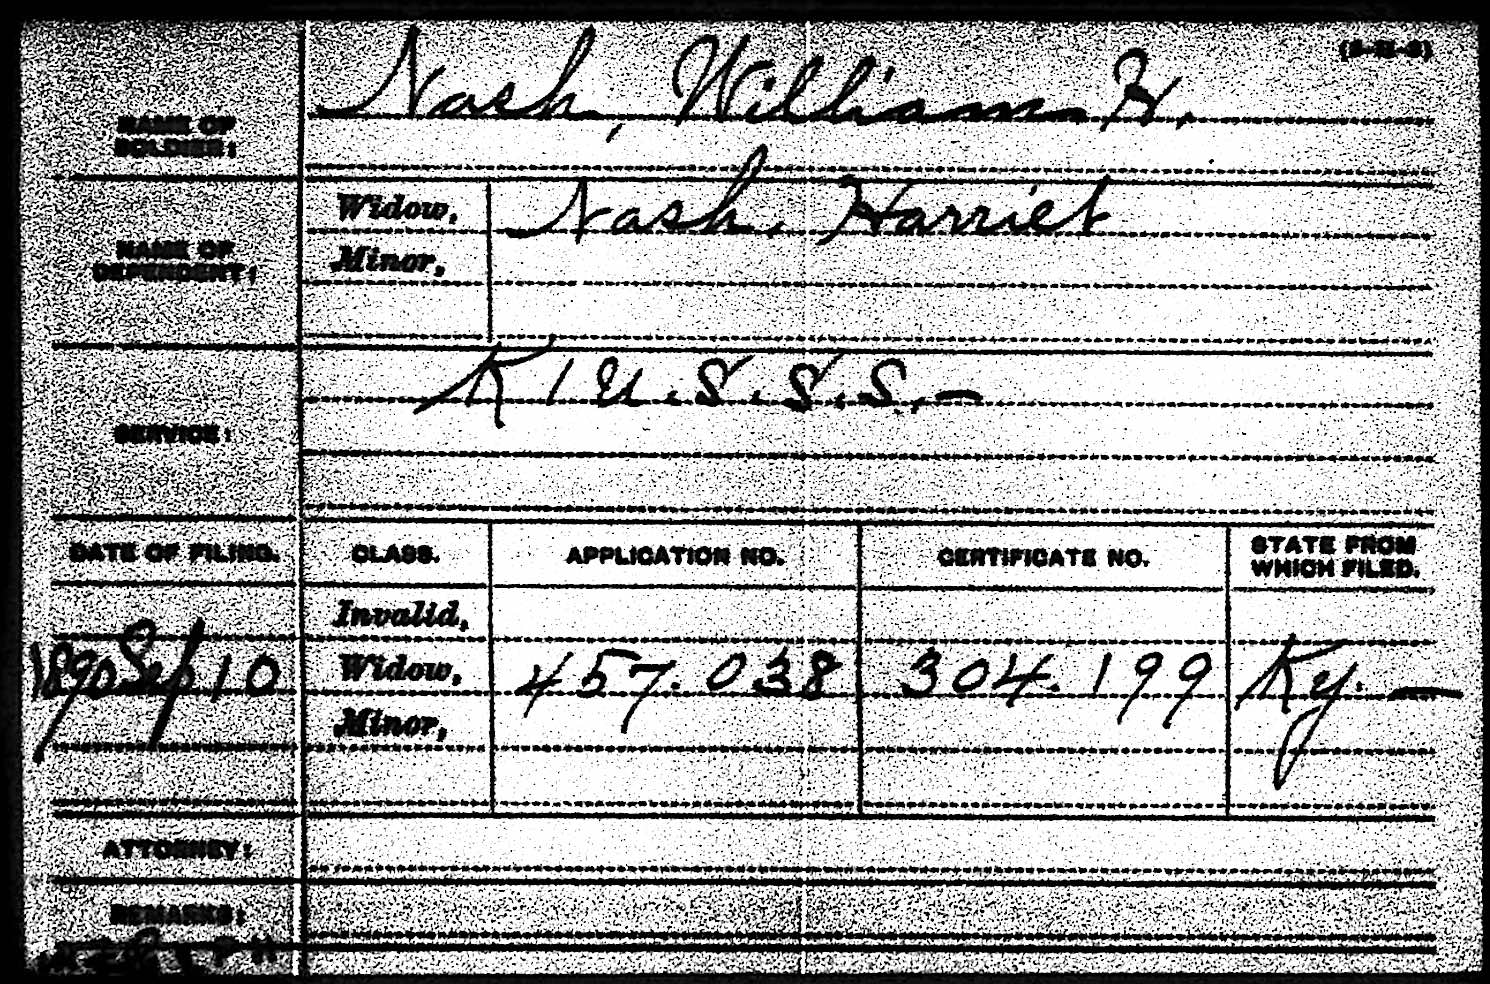 (3-21-8)
NAME OF SOLDIER:
Nash, William H.
NAME OF DEPENDENT:
Widow, Nash, Harriet
Minor,
SERVICE:
K 1 U.S.S.S.—
DATE OF FILING. CLASS. APPLICATION NO. CERTIFICATE NO. STATE FROM WHICH FILED.
Invalid,
1890 Sep 10 Widow, 457.038 304.199 Ky. —
Minor,
ATTORNEY:
REMARKS: